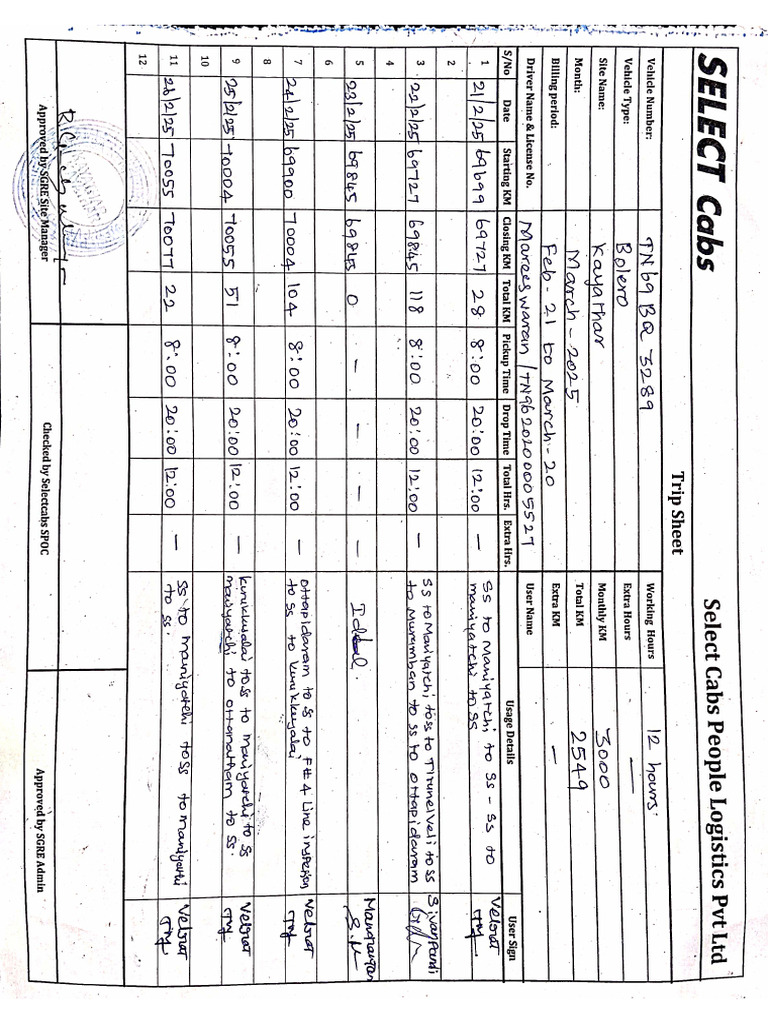 SELECT Cabs
Select Cabs People Logistics Pvt Ltd
Trip Sheet
Vehicle Number: TN69 BQ 3289 Working Hours 12 hours.
Vehicle Type: Bolero Extra Hours —
Site Name: Kayathar Monthly KM 3000
Month: March - 2025 Total KM 2549
Billing period: Feb - 21 to March - 20 Extra KM —
Driver Name & License No. Mareeswaran / TN9620200005527 User Name
S/No Date Starting KM Closing KM Total KM Pickup Time Drop Time Total Hrs. Extra Hrs. Usage Details User Sign
1 21/2/25 69699 69727 28 8:00 20:00 12:00 — SS to Maniyatchi to SS - SS to
maniyatchi to SS Velsnat
2
3 22/2/25 69727 69845 118 8:00 20:00 12:00 — SS to Maniyatchi to SS to Tirunelveli to SS
to Muramban to SS to Ottapidaram Sivanpandi
4
5 23/2/25 69845 69845 0 — — — — Ideal.
6
7 24/2/25 69900 70004 104 8:00 20:00 12:00 — Ottapidaram to SS to F#4 Line inspection
to SS to kurukkujalai Velsnat
8
9 25/2/25 70004 70055 51 8:00 20:00 12:00 — kurukkujalai to SS to maniyatchi to SS
maniyatchi to ottanatham to SS. Velsnat
10
11 28/2/25 70055 70077 22 8:00 20:00 12:00 — SS to maniyatchi to SS to maniyatchi
to SS. Velsnat
12
Approved by SGRE Site Manager Checked by Selectcabs SPOC Approved by SGRE Admin